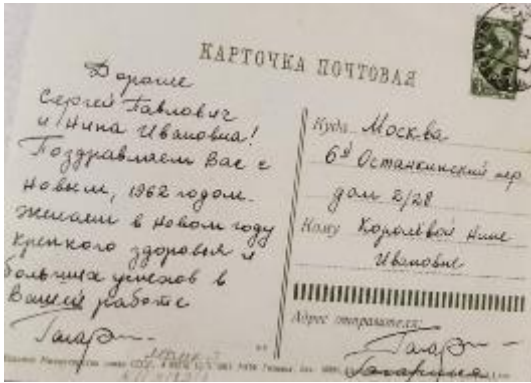 КАРТОЧКА ПОЧТОВАЯ
Дорогие
Сергей Павлович
и Нина Ивановна!
Поздравляем Вас с
Новым, 1962 годом.
Желаем в Новом году
крепкого здоровья и
больших успехов в
Вашей работе
Гагар
Куда Москва
6й Останкинский пер
дом 2/28
Кому Королёвой Нине
Ивановне
Адрес отправителя:
Гагар
Гагарина